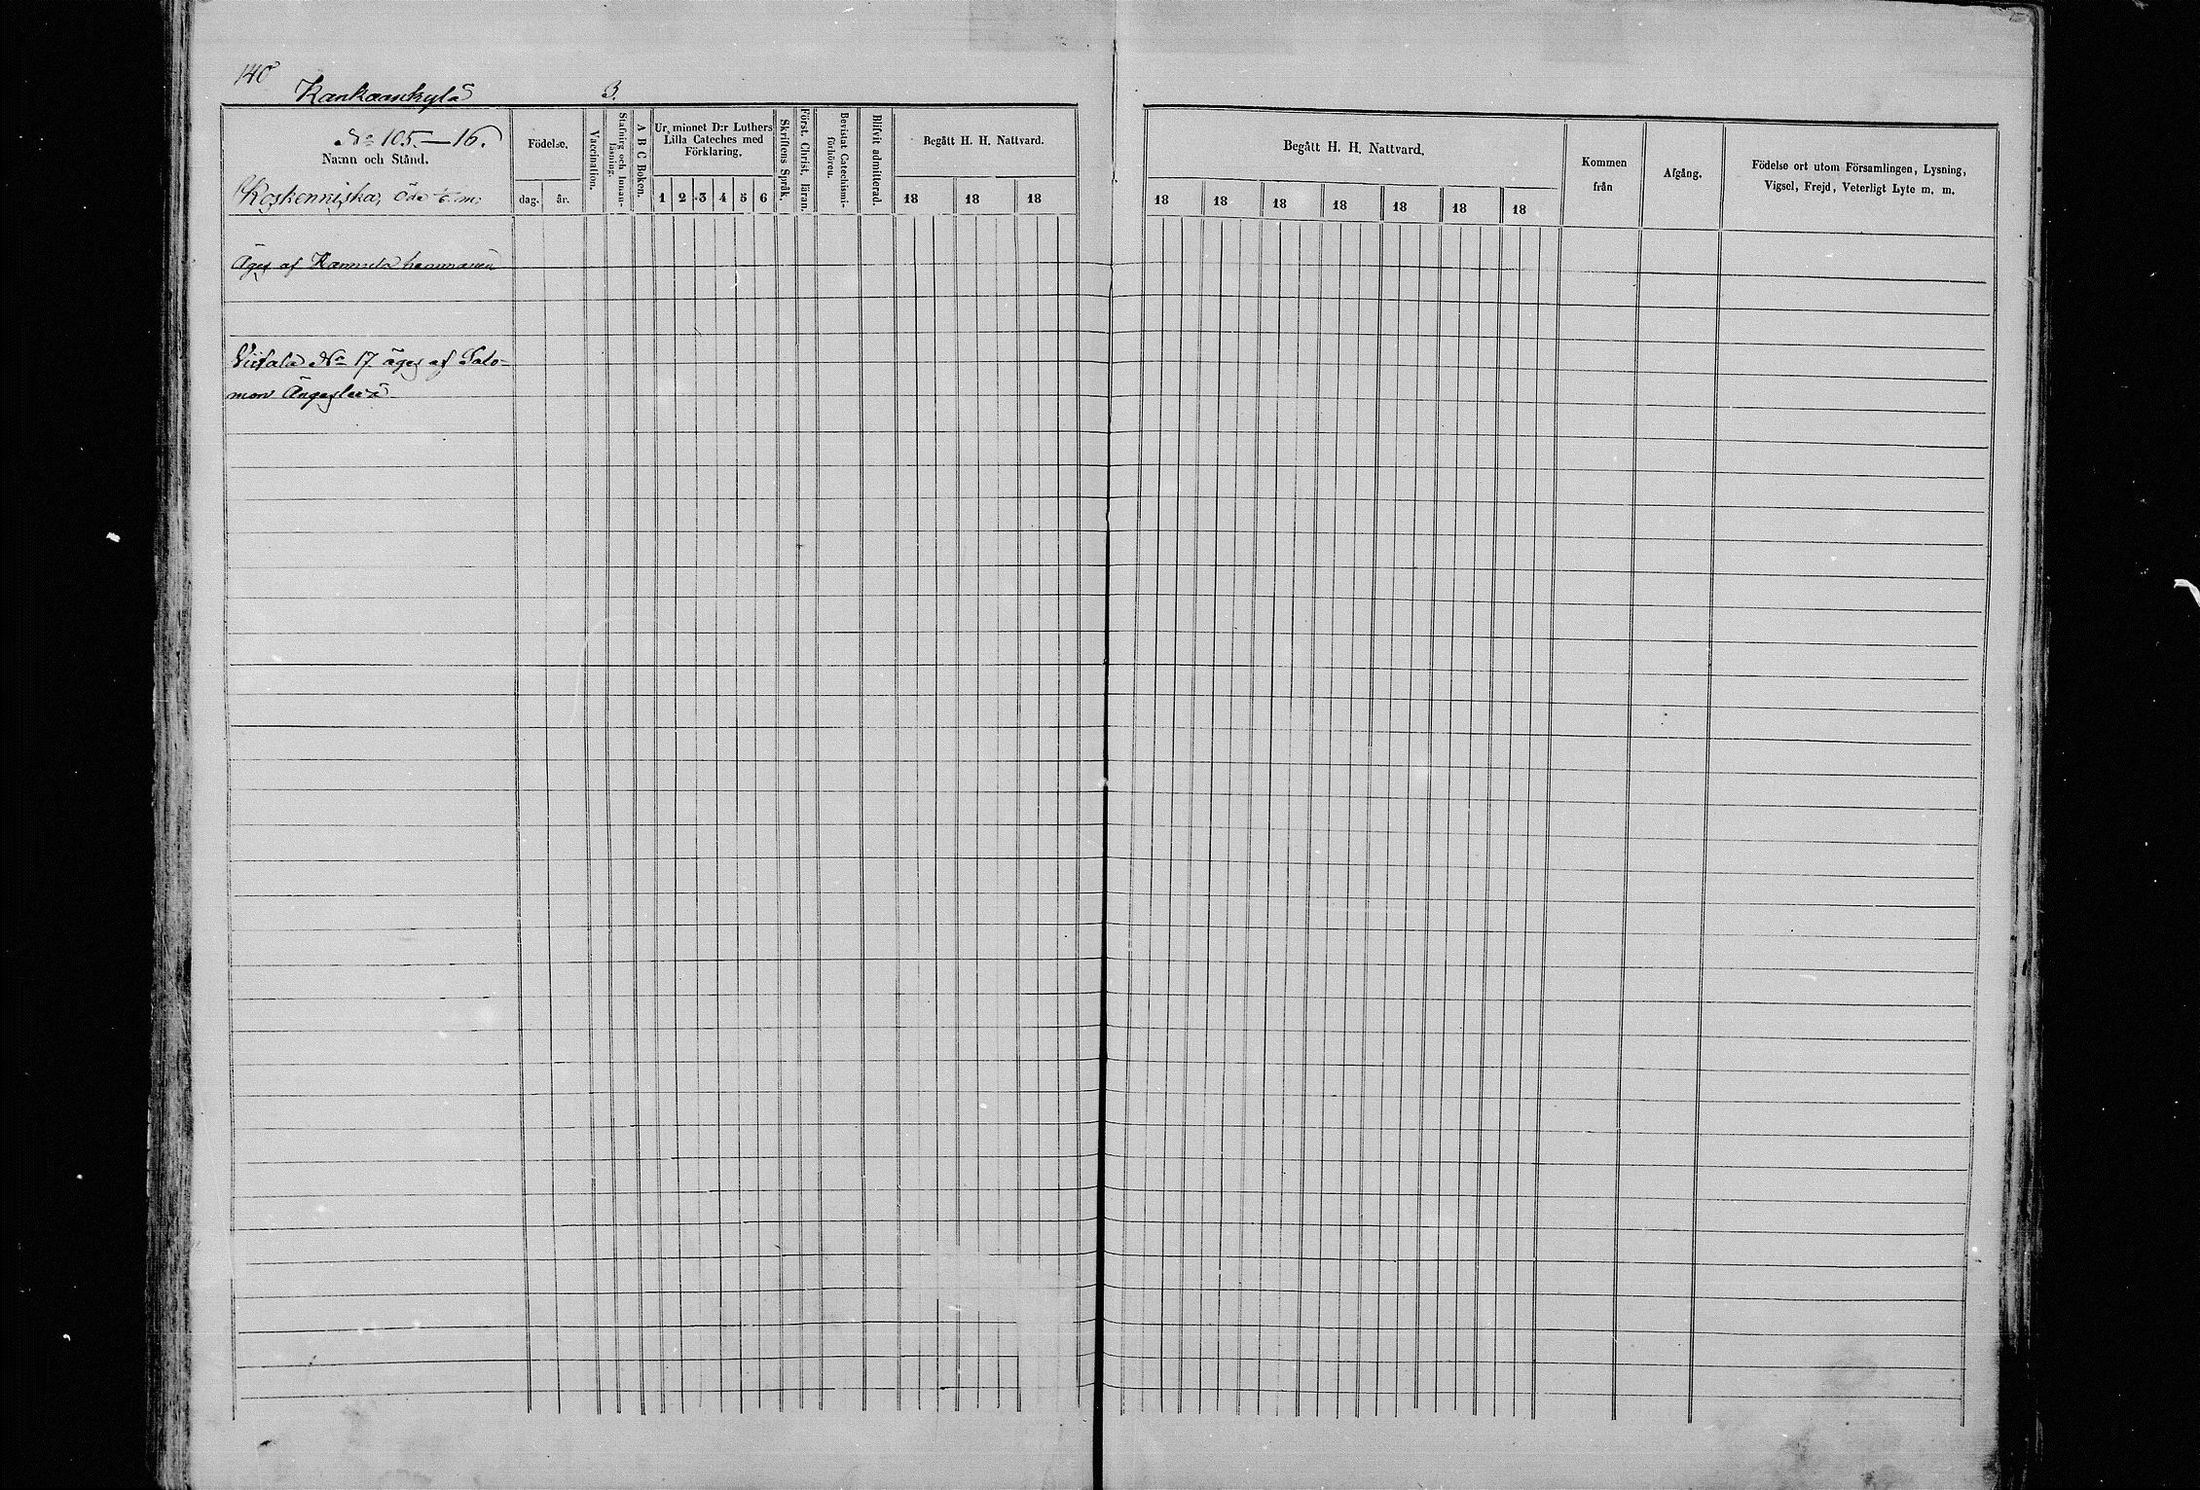 140
Kankaankylä 3.
No 105.—16.
Namn och Stånd.
Koskenniska, öde
Födelse.
dag. år.
Vaccination.
Stafning och Innan-
läsning.
A B C Boken.
Ur minnet D:r Luthers
Lilla Cateches med
Förklaring.
1 2 3 4 5 6
Skriftens Språk.
Först. Christ. läran.
Bevistat Catechismi-
förhören.
Blifvit admitterad.
Begått H. H. Nattvard.
18 18 18
Begått H. H. Nattvard.
18 18 18 18 18 18 18
Kommen
från
Afgång.
Födelse ort utom Församlingen, Lysning,
Vigsel, Frejd, Veterligt Lyte m. m.
Äges af hemmanen
No 17. äges af Salo-
mon Ängeslevä